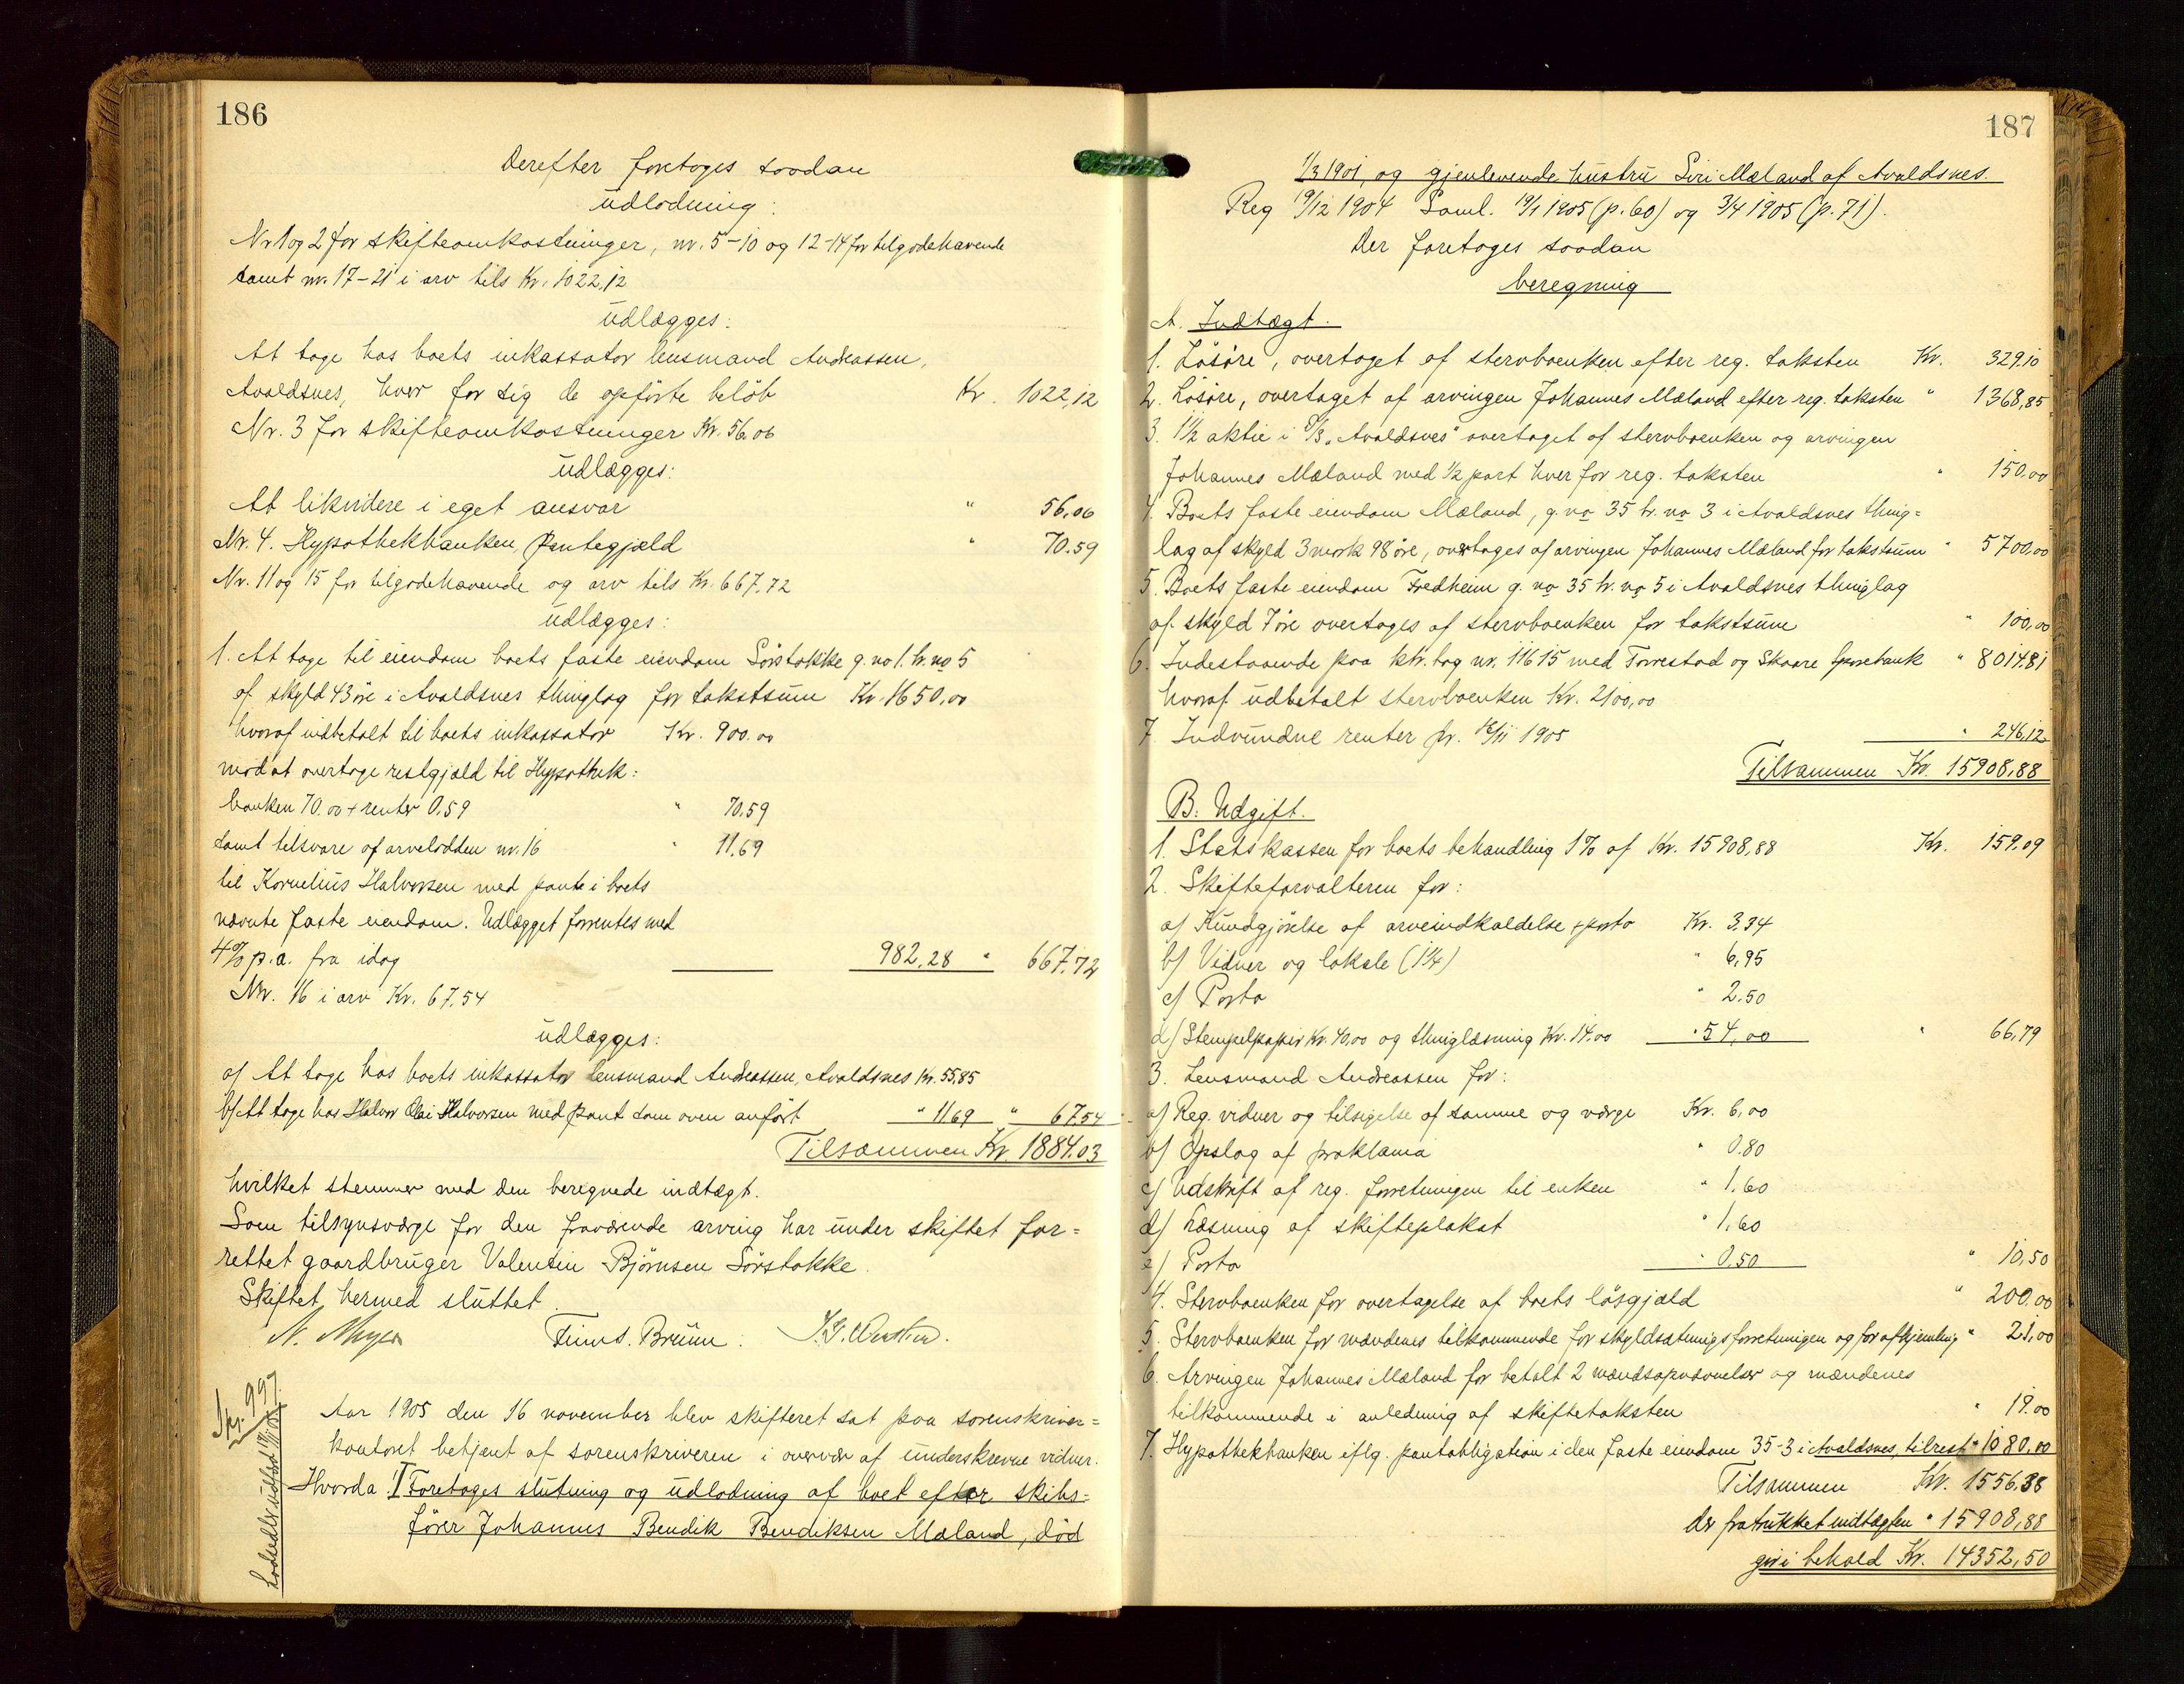 186
Derefter foretoges soodan
udlodning:
Nr 1 og 2 for skifteomkostninger, nr. 5-10 og 12-14 for tilgodehavende
samt nr. 17-21 i arv tils Kr. 1022,12
udlægges:
At tage hos boets inkassator lensmand Andreassen,
Avaldsnes, hver for sig de opförte belöb Kr. 1022,12
Nr. 3 for skifteomkostninger Kr. 56.06
udlægges:
At likvidere i eget ansvar " 56,06
Nr. 4. Hypothekbanken, Pantegjæld " 70.59
Nr. 11 og 15 for tilgodehavende og arv tils Kr. 667,72
udlægges:
1. At tage til eiendom boets faste eiendom Sörstokke g. no 1. br. no 5
af skyld 43 öre i Avaldsnes thinglag for takstsum Kr. 1650,00
hvoraf indbetalt til boets inkassator Kr. 900.00
mod at overtage restgjæld til Hypothek:
banken 70.00 + renter 0,59 " 70.59
samt tilsvare af arvelodden nr. 16 " 11,69
til Kornelius Halvorsen med pante i boets
nævnte faste eiendom. Udlægget forrentes med
4% p.a. fra idag 982,28 " 667,72
Nr. 16 i arv Kr. 67,54
udlægges:
a/ At tage hos boets inkassator lensmand Andreassen, Avaldsnes Kr. 55,85
b/ At tage hos Halvor Olai Halvorsen med pant som oven anfört " 11,69 " 67,54
Tilsammen Kr. 1884.03
hvilket stemmer med den beregnede indtægt.
Som tilsynsværge for den fraværende arving har under skiftet for=
rettet gaardbruger Valentin Björnsen Sörstokke.
Skiftet hermed sluttet.
N. Meyer Finn S. Bruun.
Aar 1905 den 16 november blev skifteret sat paa sorenskriver=
kontoret betjent af sorenskriveren i overvær af underskrevne vidner.
Hvorda: I Foretoges slutning og udlodning af boet efter skibs=
förer Johannes Bendik Bendiksen Mæland, död
187
1/3 1901, og gjenlevende hustru Siri Mæland af Avaldsnes.
Reg 19/12 1904 Saml. 19/1 1905 (p. 60) og 3/4 1905 (p. 71).
Der foretoges soodan
beregning
A. Indtægt.
1. Lösöre, overtaget af stervboenken efter reg. taksten Kr. 329.10
2. Lösöre, overtaget af arvingen Johannes Mæland efter reg. taksten " 1368,85
3. 1 1/2 aktie i D/S "Avaldsnes" overtaget af stervboenken og arvingen
Johannes Mæland med 1/2 part hver for reg. taksten " 150.00
4. Boets faste eiendom Mæland, g. no 35 br. no 3 i Avaldsnes thing=
lag af skyld 3 mark 98 öre, overtages af arvingen Johannes Mæland for takstsum " 5700,00
5. Boets faste eiendom Fredheim g. no 35 br. no 5 i Avaldsnes thinglag
af skyld 7 öre overtages af stervboenken for takstsum " 100,00
6. Indestaaende paa ktr. bog nr. 11615 med Torvestad og Skaare sparebank " 8014.81
hvoraf udbetalt stervboenken Kr. 2100,00
7. Indvundne renter pr. 16/11 1905 " 246,12
Tilsammen Kr. 15908,88
B. Udgift.
1. Statskassen for boets behandling 1% af Kr. 15908,88 Kr. 159,09
2. Skifteforvalteren for:
a/ Kundgjörelse af arveindkaldelse + porto Kr. 3,34
b/ Vidner og lokale (1 1/4) " 6,95
c/ Porto " 2.50
d/ Stempelpapir Kr. 40,00 og thinglæsning Kr. 14.00 " 54,00 " 66,79
3. Lensmand Andreassen for:
a/ Reg. vidner og tilsigelse af samme og værge Kr. 6,00
b/ Opslag af proklama " 0.80
c/ Udskrift af reg. forretningen til enken " 1,60
d/ Læsning af skifteplakat " 1,60
e/ Porto " 0.50 " 10,50
4. Stervboenken for overtagelse af boets lösgjæld " 200.00
5. Stervboenken for mændenes tilkommende for skyldsætningsforretningen og for afhjemling " 21,00
6. Arvingen Johannes Mæland for betalt 2 mændsopnævnelser og mændenes
tilkommende i anledning af skiftetaksten " 19.00
7. Hypothekbanken iflg. pantobligation i den faste eiendom 35-3 i Avaldsnes, tilrest " 1080.00
Tilsammen Kr. 1556,38
der fratrukket indtægten " 15908,88
giver i behold Kr. 14352,50